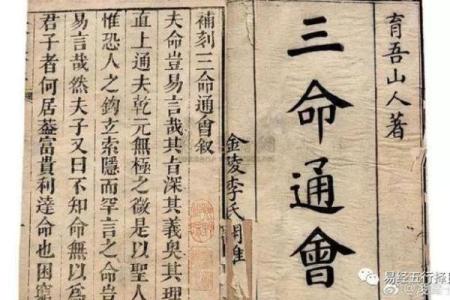 育吾山人著
三命通會
金陵李氏
補刻三命通會叙
夫命豈易言哉其旨深其義奧其理
直上通夫乾元無極之微是以聖人
惟恐人之鈎立索隱而罕言之命豈
易言哉然夫子又曰不知命無以
君子者何居葢富貴利達命也困窮
易经五行择